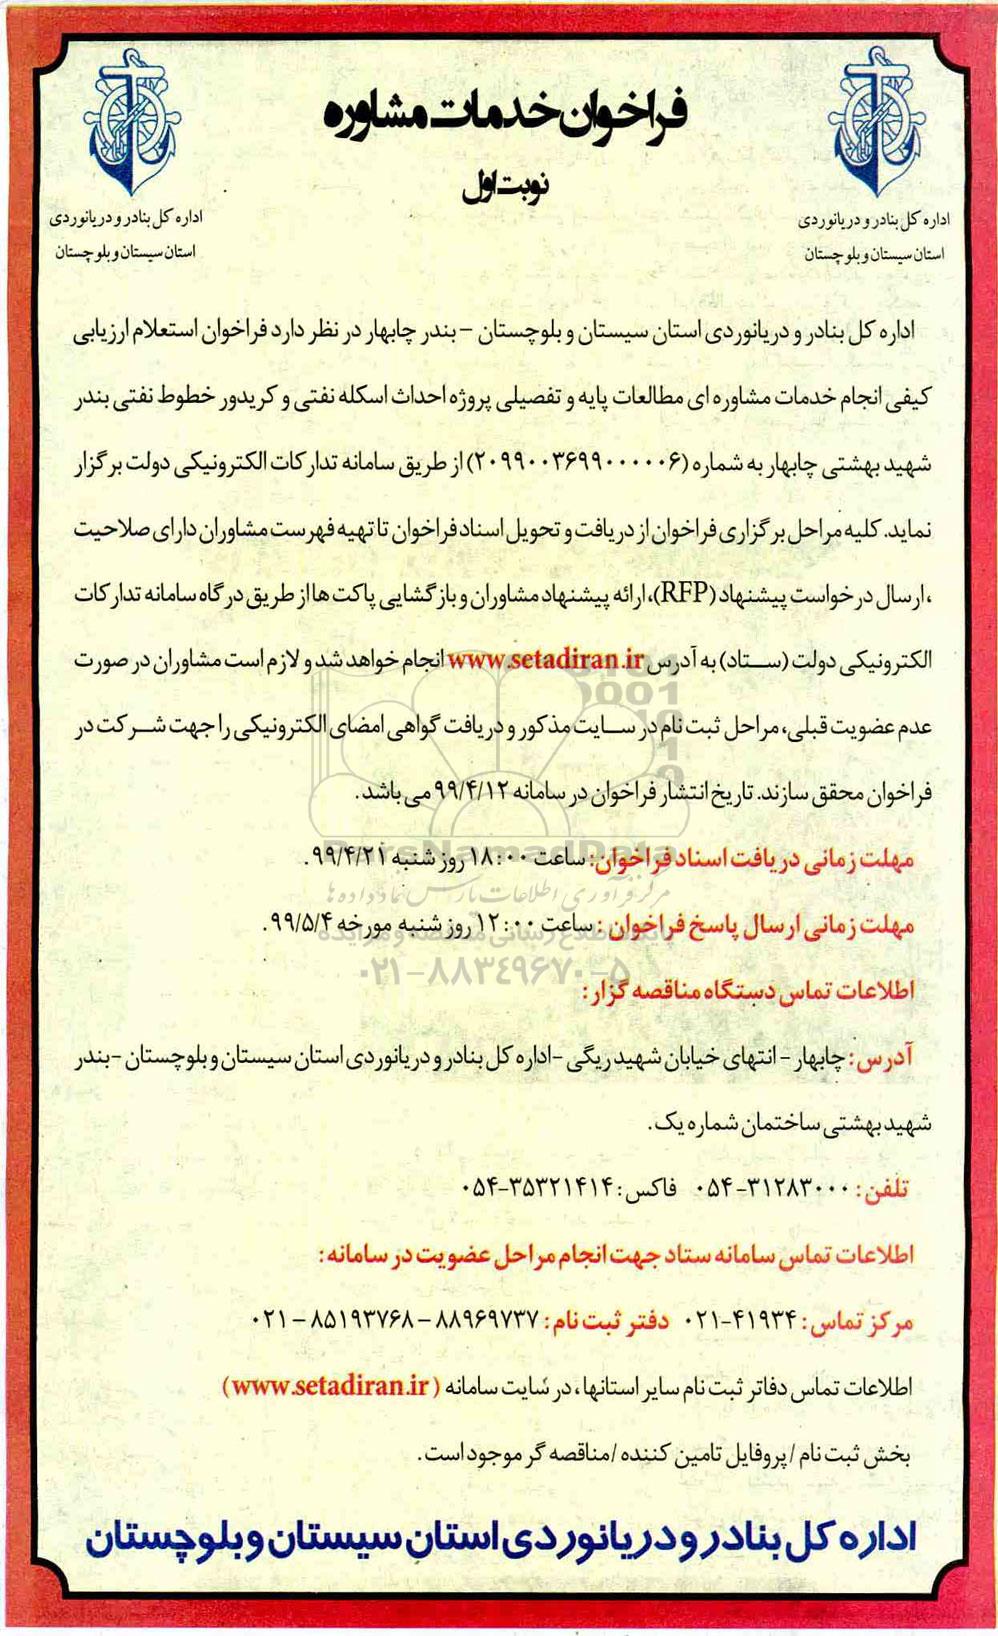 فراخوان خدمات مشاوره
نوبت اول
اداره کل بنادر و دریانوردی
استان سیستان و بلوچستان
اداره کل بنادر و دریانوردی
استان سیستان و بلوچستان
اداره کل بنادر و دریانوردی استان سیستان و بلوچستان – بندر چابهار در نظر دارد فراخوان استعلام ارزیابی
کیفی انجام خدمات مشاوره ای مطالعات پایه و تفصیلی پروژه احداث اسکله نفتی و کریدور خطوط نفتی بندر
شهید بهشتی چابهار به شماره (۲۰۹۹۰۰۳۶۹۹۰۰۰۰۰۶) از طریق سامانه تدارکات الکترونیکی دولت برگزار
نماید. کلیه مراحل برگزاری فراخوان از دریافت و تحویل اسناد فراخوان تا تهیه فهرست مشاوران دارای صلاحیت
،ارسال درخواست پیشنهاد (RFP)، ارائه پیشنهاد مشاوران و بازگشایی پاکت ها از طریق درگاه سامانه تدارکات
الکترونیکی دولت (ستاد) به آدرس www.setadiran.ir انجام خواهد شد و لازم است مشاوران در صورت
عدم عضویت قبلی، مراحل ثبت نام در سایت مذکور و دریافت گواهی امضای الکترونیکی را جهت شرکت در
فراخوان محقق سازند. تاریخ انتشار فراخوان در سامانه ۹۹/۴/۱۲ می باشد.
مهلت زمانی دریافت اسناد فراخوان: ساعت ۱۸:۰۰ روز شنبه ۹۹/۴/۲۱.
مهلت زمانی ارسال پاسخ فراخوان : ساعت ۱۲:۰۰ روز شنبه مورخه ۹۹/۵/۴.
ParsNamadData
مرکز فرآوری اطلاعات پارس نماد داده ها
۰۲۱-۸۸۳۴۹۶۷۰-۵
اطلاعات تماس دستگاه مناقصه گزار:
آدرس: چابهار - انتهای خیابان شهید ریگی -اداره کل بنادر و دریانوردی استان سیستان و بلوچستان -بندر
شهید بهشتی ساختمان شماره یک.
تلفن: ۳۱۲۸۳۰۰۰-۰۵۴ فاکس: ۳۵۳۲۱۴۱۴-۰۵۴
اطلاعات تماس سامانه ستاد جهت انجام مراحل عضویت در سامانه:
مرکز تماس: ۴۱۹۳۴-۰۲۱ دفتر ثبت نام: ۸۸۹۶۹۷۳۷ – ۸۵۱۹۳۷۶۸ – ۰۲۱
اطلاعات تماس دفاتر ثبت نام سایر استانها، در سایت سامانه (www.setadiran.ir)
بخش ثبت نام / پروفایل تامین کننده / مناقصه گر موجود است.
اداره کل بنادر و دریانوردی استان سیستان و بلوچستان